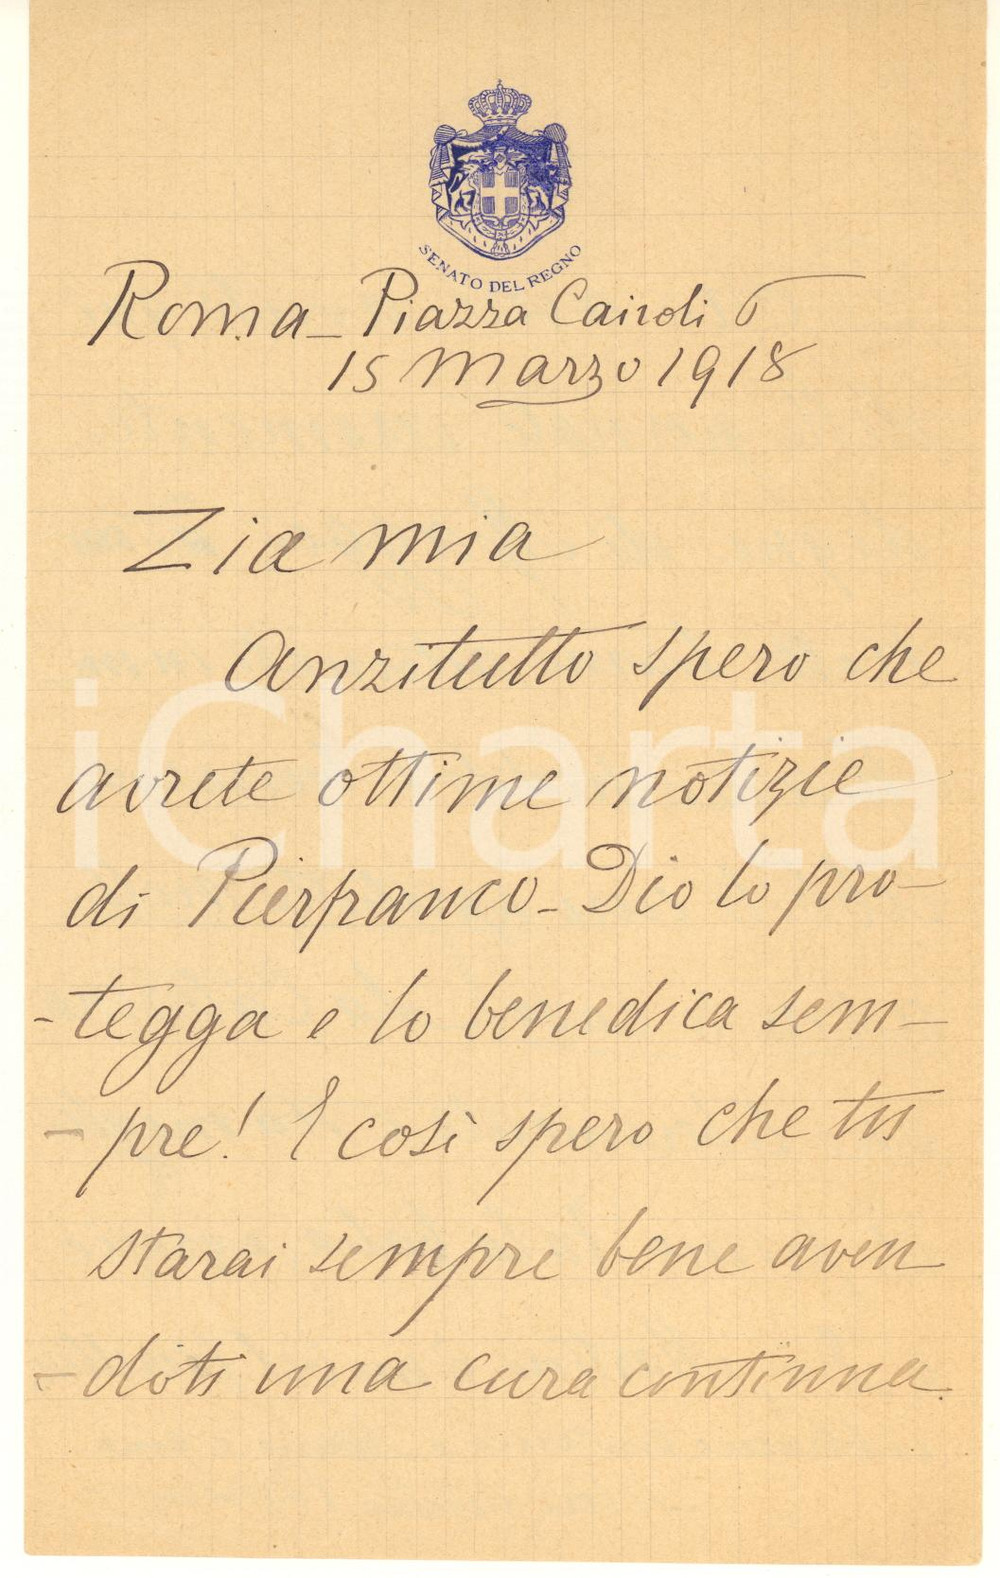 SENATO DEL REGNO
Roma - Piazza Cairoli 6
15 Marzo 1918
Zia mia
Anzitutto spero che
avrete ottime notizie
di Pierfranco - Dio lo pro-
-tegga e lo benedica sem-
- pre! E così spero che tu
starai sempre bene aven
- doti una cura continua.
iCharta